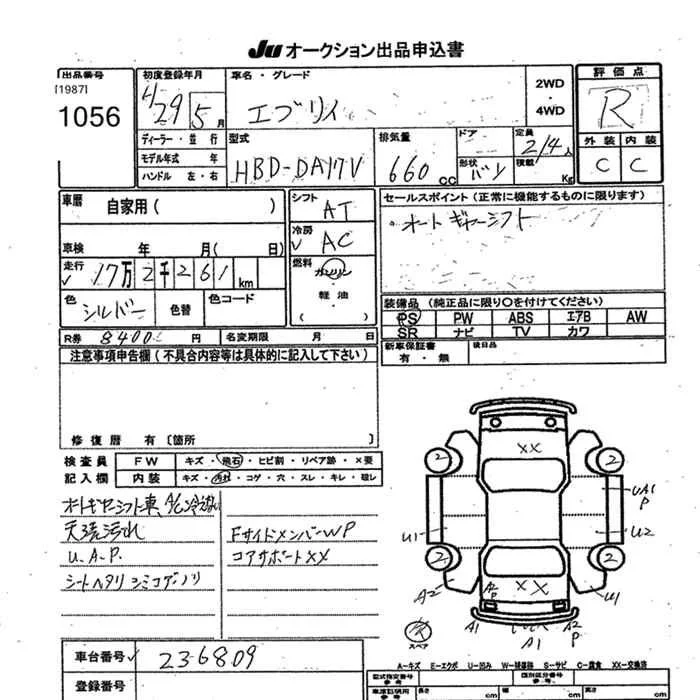 Ju オークション出品申込書
出品番号
[1987]
1056
初度登録年月
29 5 月
車名・グレード
エブリイ
2WD
・
4WD
評価点
R
外装 内装
C C
ディーラー・並行
モデル年式 年
ハンドル 左・右
型式
HBD-DA17V
排気量
660 cc
ドア
形状
バン
定員
2/4人
積載
Kg
車歴
自家用( )
シフト
AT
セールスポイント(正常に機能するものに限ります)
オートギヤーシフト
車検 年 月( 日)
冷房
AC
走行
17万2千261 km
燃料
ガソリン
・
軽油
・
( )
色
シルバー
色替
色コード
装備品 (純正品に限り○を付けてください)
PS PW ABS エアB AW
SR ナビ TV カワ
R券 8400 円
名変期限 月 日
新車保証書
有・無
後日品
注意事項申告欄(不具合内容等は具体的に記入して下さい)
修復歴 有〔箇所 〕
検査員
記入欄
FW キズ・飛石・ヒビ割・リペア跡・×要
内装 キズ・汚れ・コゲ・穴・スレ・キレ・ビレ
オートギヤーシフト車、A/C冷えない
天張汚れ
U.A.P.
シートヘタリ シミコゲノリ
FサイドメンバーWP
コアサポートXX
XX
2 2
UA1
P
U1 U2
2 2
A2 A2
P
XX
U1
スペア
A1 A1 A2
P
車台番号 236809
登録番号
A-キズ E-エクボ U-凹み W-補修跡 S-サビ C-腐食 XX-交換済
型式指定番号
参考
類別区分番号
参考
車庫証明用
参考
長さ cm 幅 cm 高さ cm